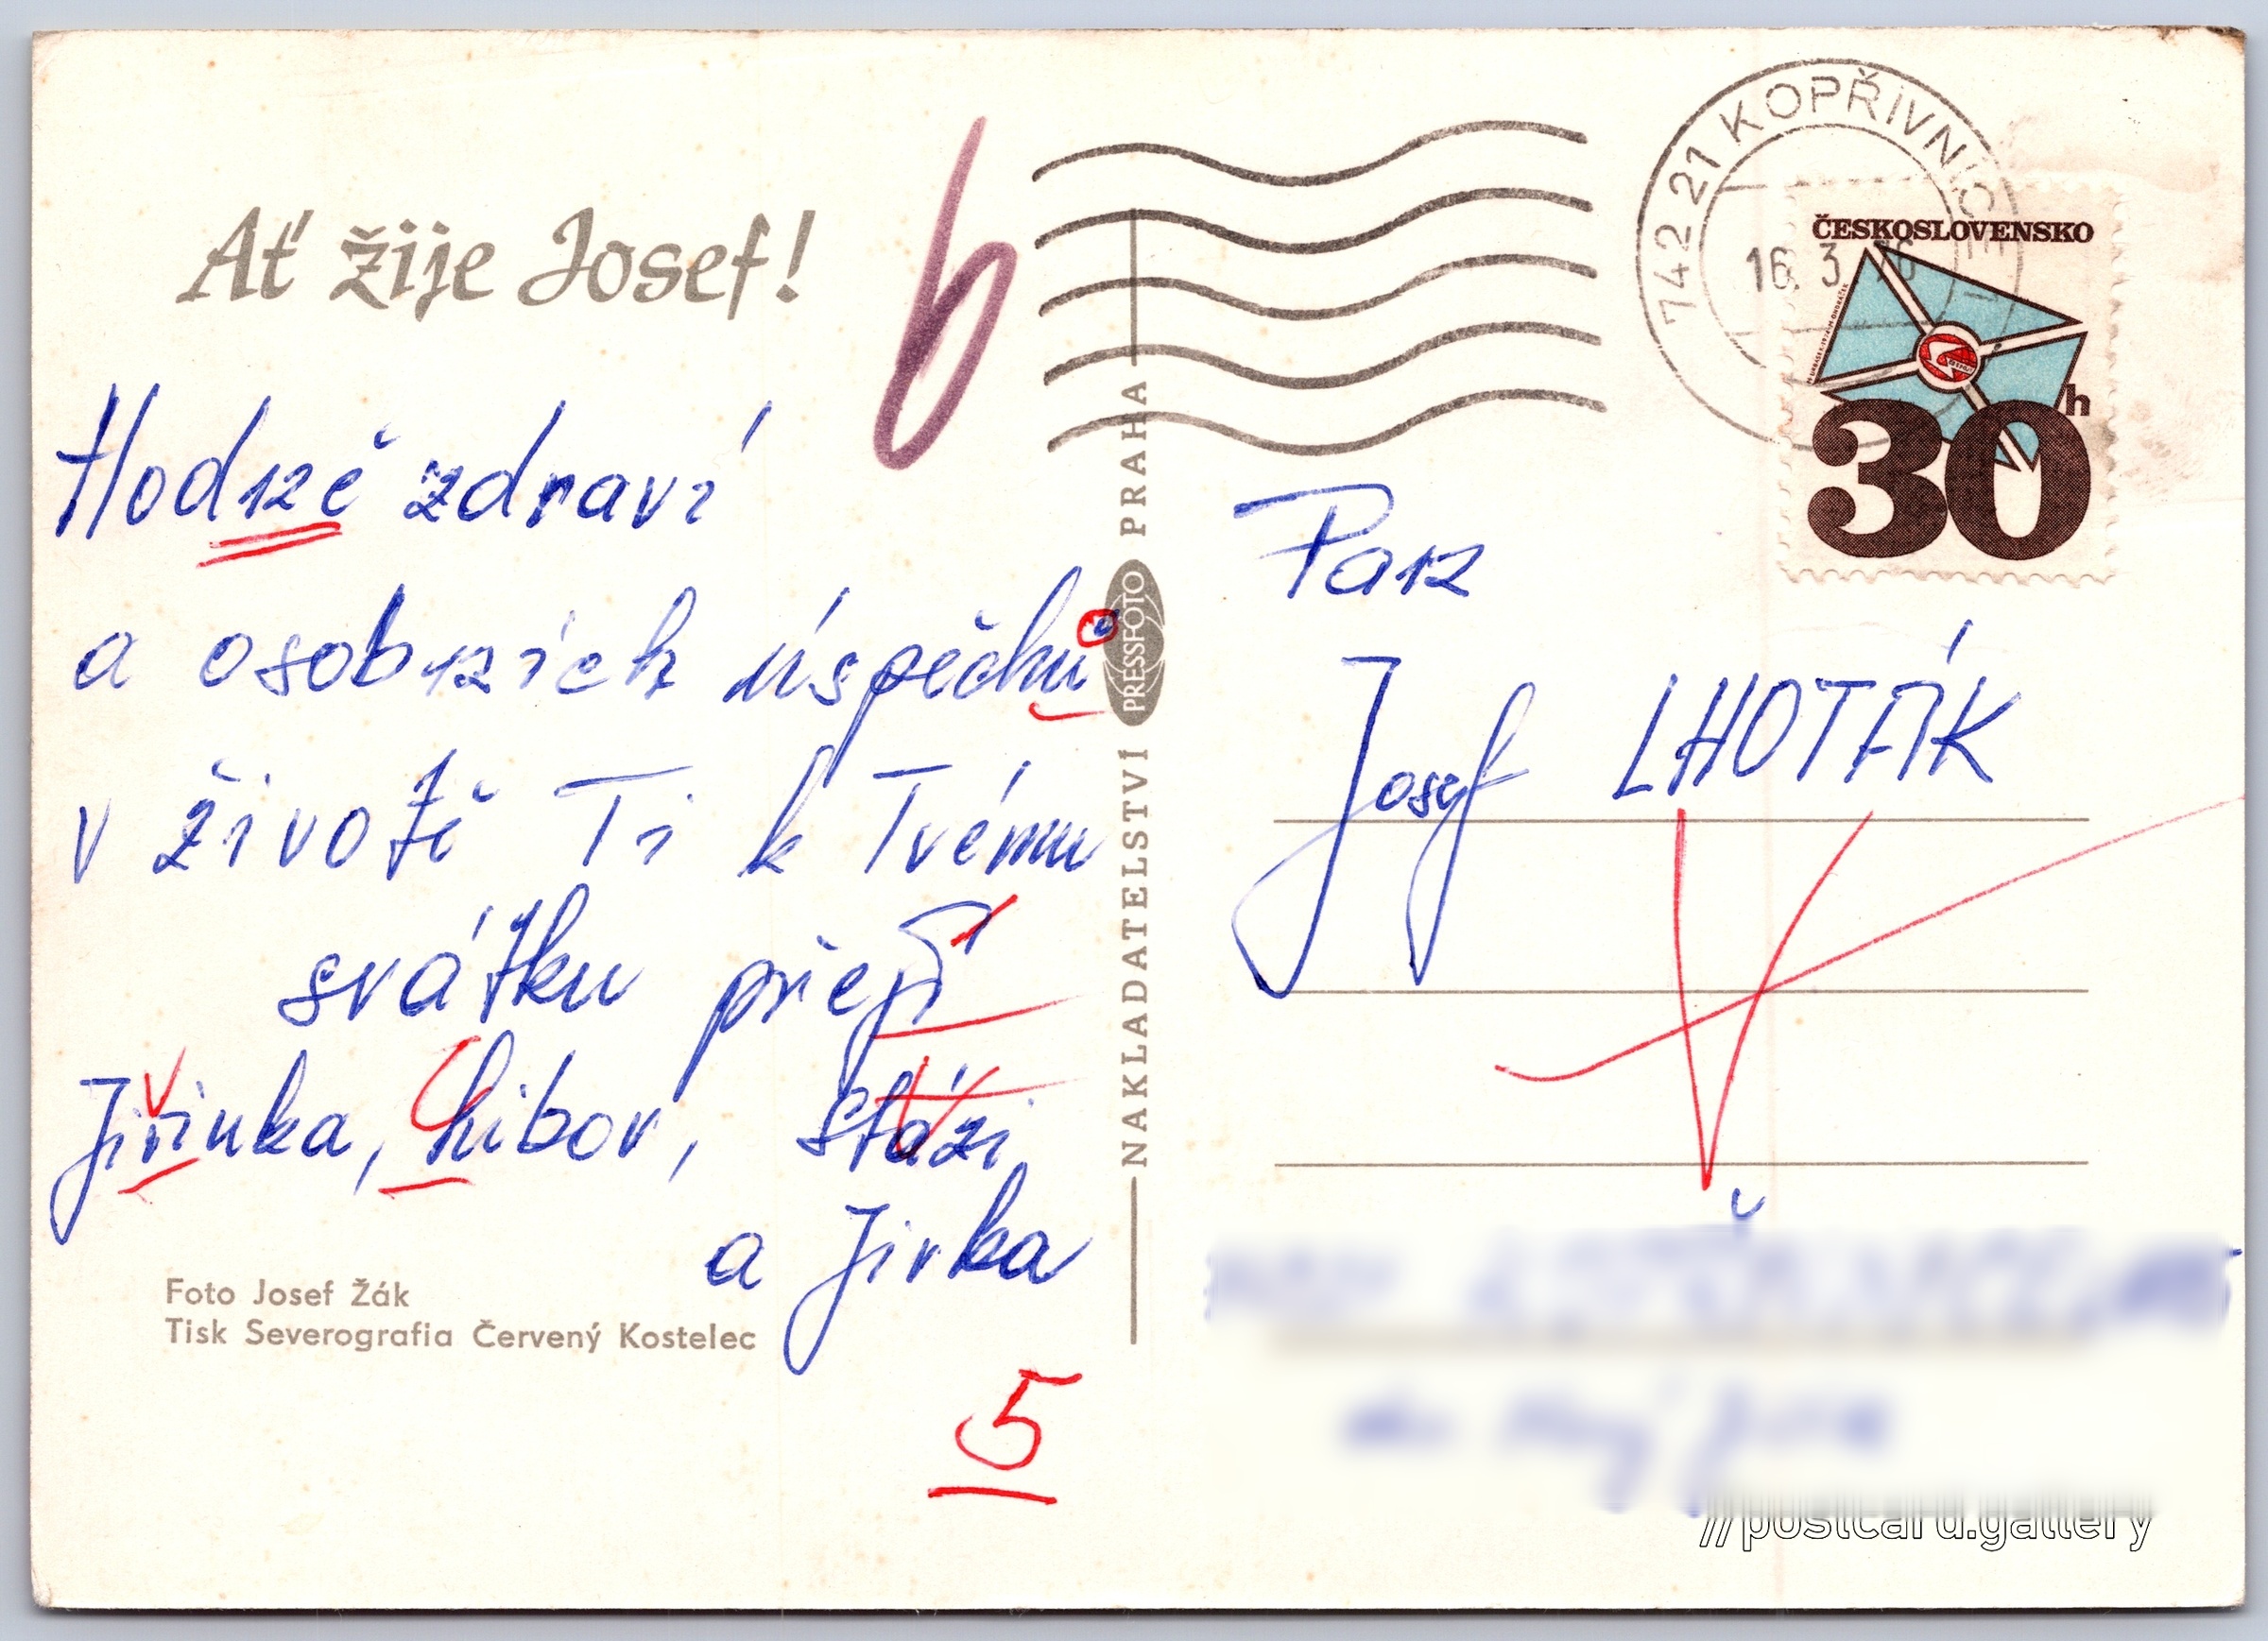 Ať žije Josef!
6
Hodně zdraví
a osobních úspěchů
v životě Ti k Tvému
svátku přejí
Jiřinka, Chibor, Stázi
a Jirka
Foto Josef Žák
Tisk Severografia Červený Kostelec
5
NAKLADATELSTVÍ PRESSFOTO PRAHA
742 21 KOPŘIVNICE 1
16. 3. 76
ČESKOSLOVENSKO
30h
Pan
Josef LHOTÁK
//postcard.gallery